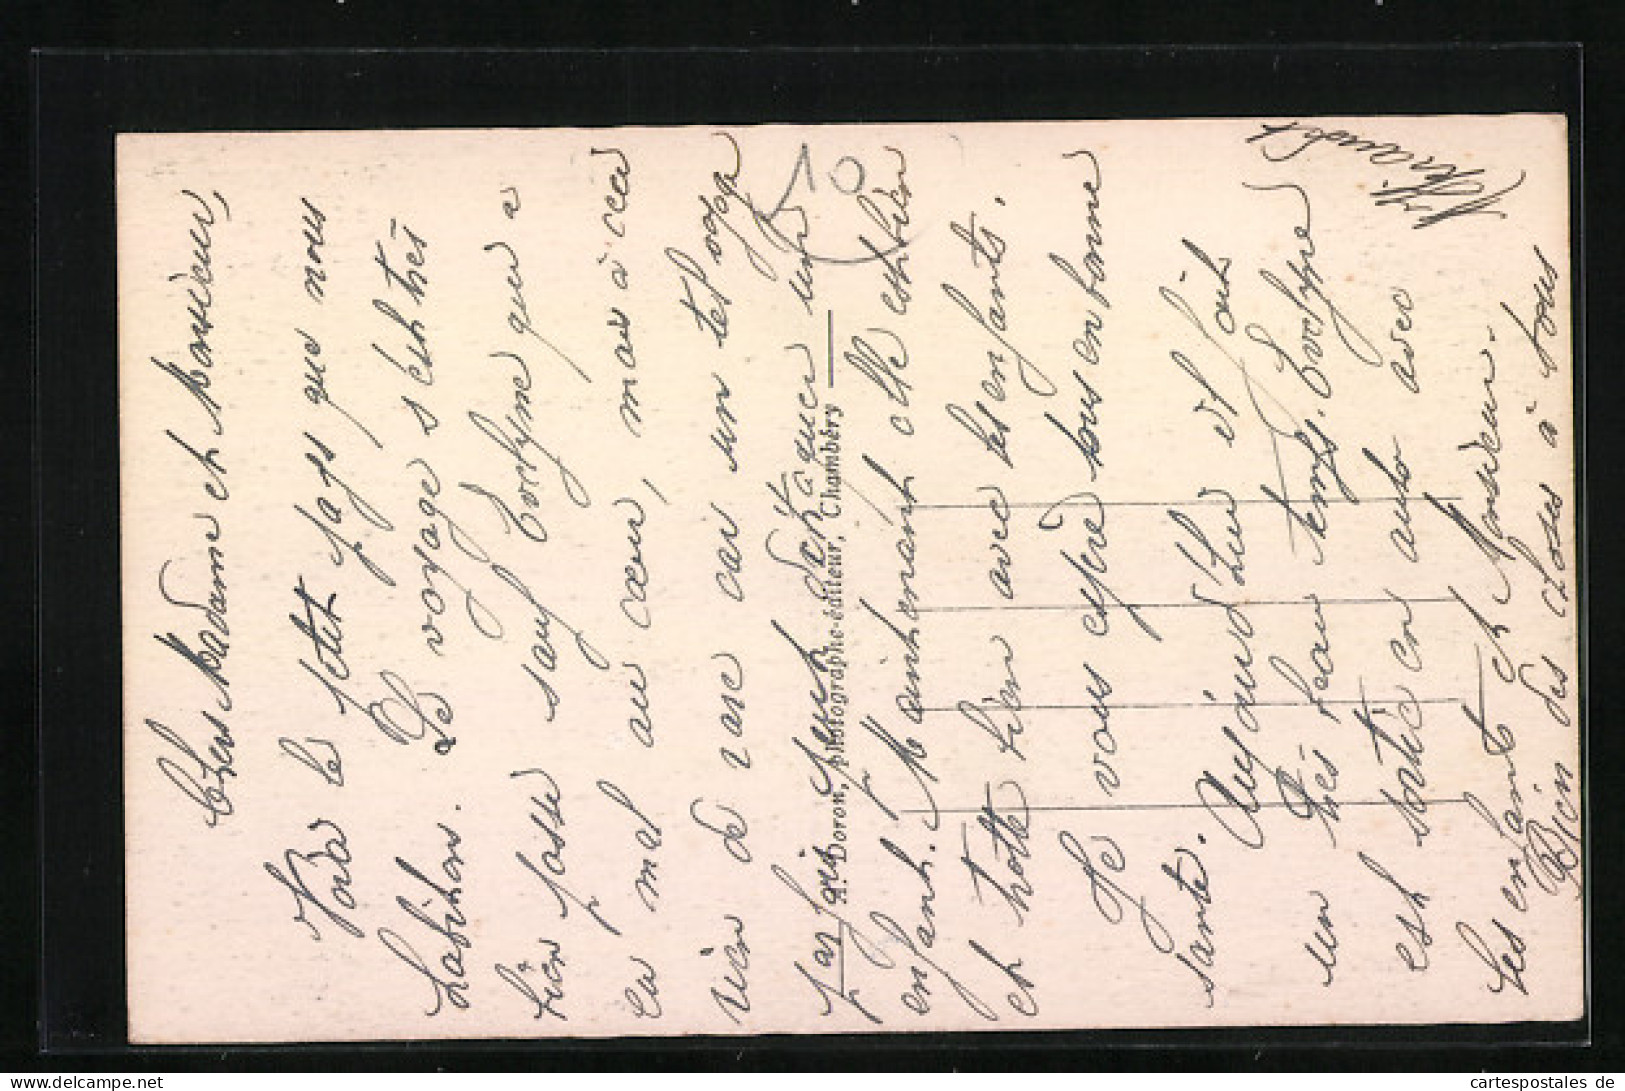 Chers Madame et Monsieur,
Voià le petit pays que nous
habitons. Le voyage s'est très
bien passé sauf Evelyne qui a
eu mal au cœur, mais à ceci
rien de rare car un tel voyage
par fait peut être que un
enfant. Maintenant elle est bien
et trotte bien avec les enfants.
Je vous espère tous en bonne
santé. Aujourd'hui il fait
un très beau temps. Evelyne
est sortie en auto avec
les enfants et Monsieur.
Bien des choses à tous
10
A. Doron, photographe-éditeur, Chambéry
cartespostales de